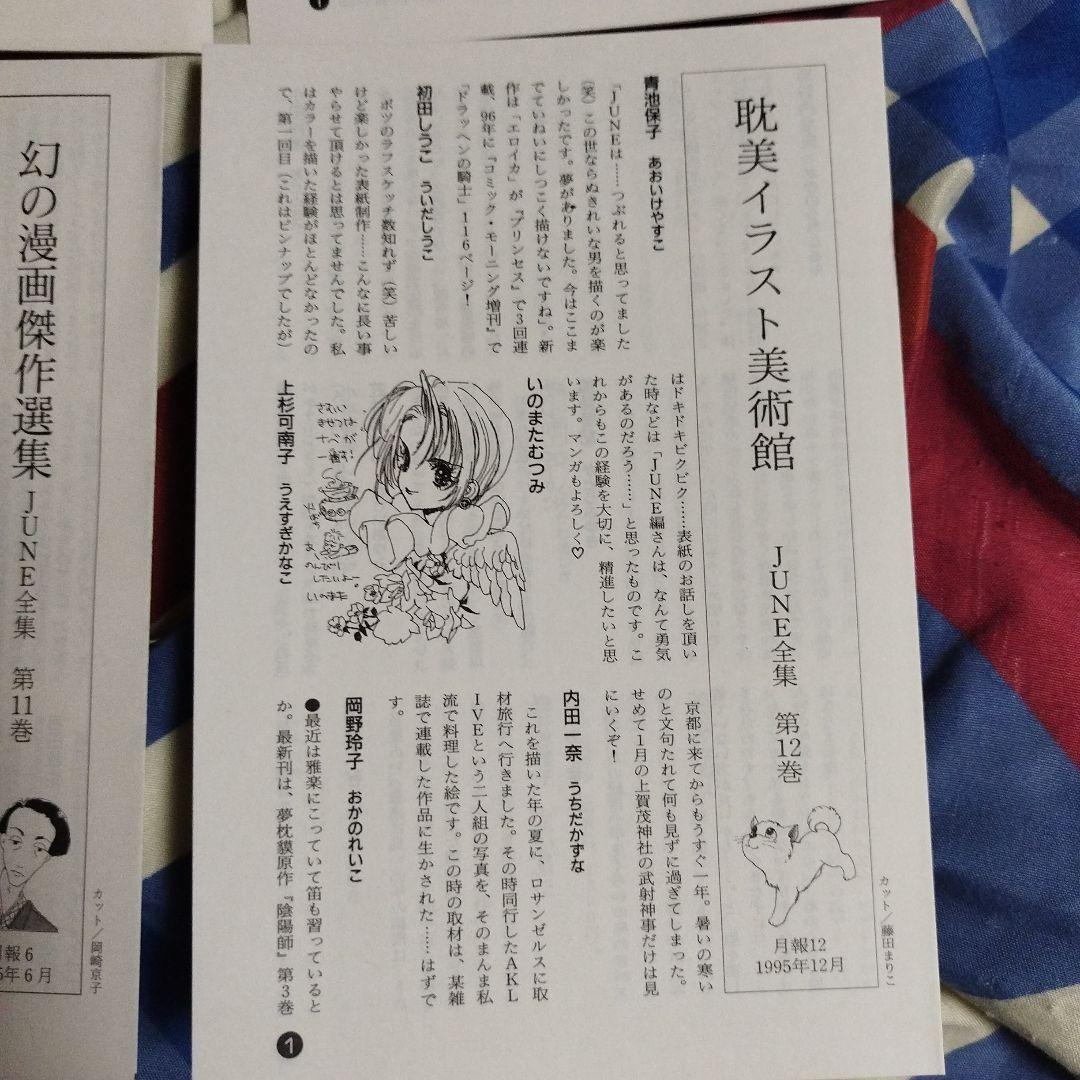 耽美イラスト美術館　JUNE全集　第12巻
月報12
1995年12月
カット／藤田まりこ
青池保子　あおいけやすこ
「JUNEは……つぶれると思ってました
(笑)この世ならぬきれいな男を描くのが楽
しかったです。夢がありました。今はここま
でていねいにしつこく描けないですね」。新
作は「エロイカ」が『プリンセス』で3回連
載、96年に『コミック・モーニング増刊』で
『ドラッヘンの騎士』116ページ！
初田しうこ　ういだしうこ
ボツのラフスケッチ数知れず(笑)苦しい
けど楽しかった表紙制作……こんなに長い事
やらせて頂けるとは思ってませんでした。私
はカラーを描いた経験がほとんどなかったの
で、第一回目(これはピンナップでしたが)
はドキドキビクビク……表紙のお話しを頂い
た時などは「JUNE編さんは、なんて勇気
があるのだろう……」と思ったものです。こ
れからもこの経験を大切に、精進したいと思
います。マンガもよろしく♡
いのまたむつみ
さむい
きせつは
なべが
一番!
のんびり
したいよ。
いのまた
上杉可南子　うえすぎかなこ
京都に来てからもうすぐ一年。暑いの寒い
のと文句たれて何も見ずに過ぎてしまった。
せめて1月の上賀茂神社の武射神事だけは見
にいくぞ！
内田一奈　うちだかずな
これを描いた年の夏に、ロサンゼルスに取
材旅行へ行きました。その時同行したAKL
IVEという二人組の写真を、そのまんま私
流で料理した絵です。この時の取材は、某雑
誌で連載した作品に生かされた……はずで
す。
岡野玲子　おかのれいこ
●最近は雅楽にこっていて笛も習っていると
か。最新刊は、夢枕貘原作『陰陽師』第3巻
1
幻の漫画傑作選集　JUNE全集　第11巻
報6
年6月
カット／岡崎京子